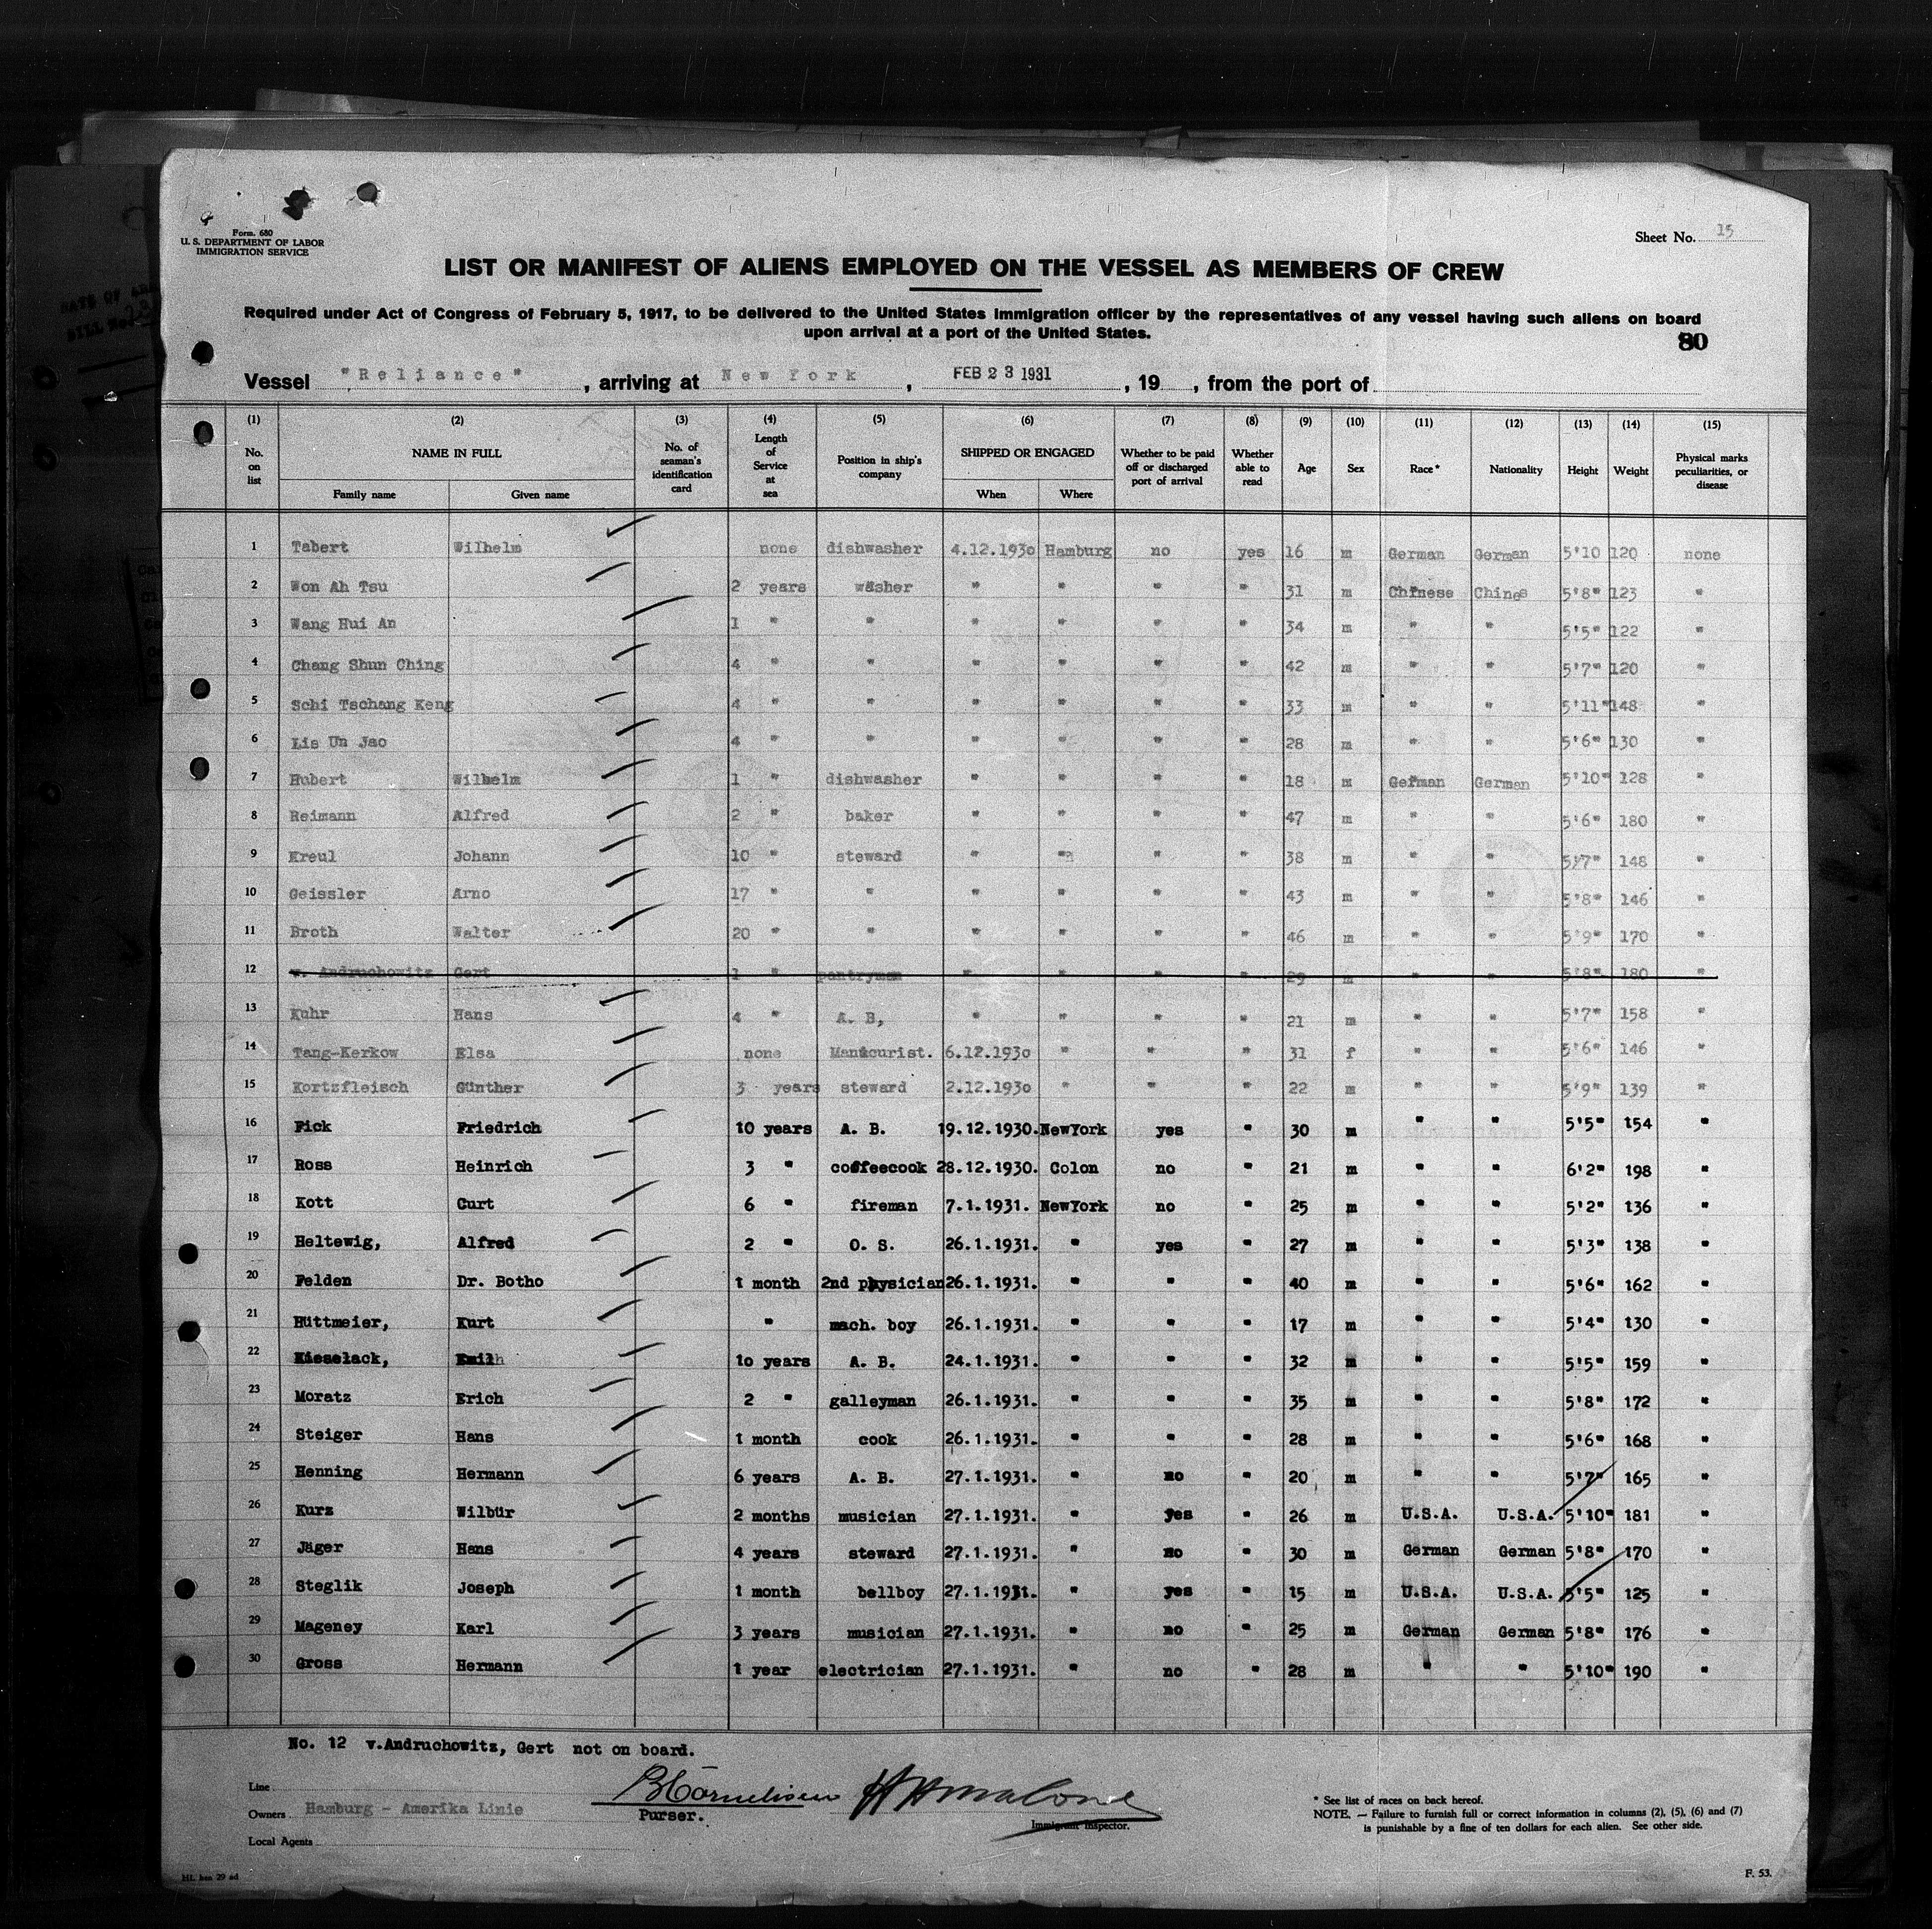 Form. 680
U. S. DEPARTMENT OF LABOR
IMMIGRATION SERVICE
Sheet No. 15
LIST OR MANIFEST OF ALIENS EMPLOYED ON THE VESSEL AS MEMBERS OF CREW
Required under Act of Congress of February 5, 1917, to be delivered to the United States Immigration officer by the representatives of any vessel having such aliens on board
upon arrival at a port of the United States.
80
Vessel "Reliance", arriving at New York, FEB 23 1931, 19 , from the port of
(1) (2) (3) (4) (5) (6) (7) (8) (9) (10) (11) (12) (13) (14) (15)
No. on list NAME IN FULL Family name Given name No. of seaman's identification card Length of Service at sea Position in ship's company SHIPPED OR ENGAGED When Where Whether to be paid off or discharged port of arrival Whether able to read Age Sex Race* Nationality Height Weight Physical marks peculiarities, or disease
1 Tabert Wilhelm none dishwasher 4.12.1930 Hamburg no yes 16 m German German 5'10 120 none
2 Won Ah Tsu 2 years washer " " " " 31 m Chinese Chines 5'8" 123 "
3 Wang Hui An 1 " " " " " " 34 m " " 5'5" 122 "
4 Chang Shun Ching 4 " " " " " " 42 m " " 5'7" 120 "
5 Schi Tschang Keng 4 " " " " " " 33 m " " 5'11" 148 "
6 Lis Un Jao 4 " " " " " " 28 m " " 5'6" 130 "
7 Hubert Wilhelm 1 " dishwasher " " " " 18 m German German 5'10" 128 "
8 Reimann Alfred 2 " baker " " " " 47 m " " 5'6" 180 "
9 Kreul Johann 10 " steward " " " " 38 m " " 5'7" 148 "
10 Geissler Arno 17 " " " " " " 43 m " " 5'8" 146 "
11 Broth Walter 20 " " " " " " 46 m " " 5'9" 170 "
12 v. Andruchowitz Gert 1 " pantryman " " " " 29 m " " 5'8" 180 "
13 Kuhr Hans 4 " A. B, " " " " 21 m " " 5'7" 158 "
14 Tang-Kerkow Elsa none Manicurist. 6.12.1930 " " " 31 f " " 5'6" 146 "
15 Kortzfleisch Günther 3 years steward 2.12.1930 " " " 22 m " " 5'9" 139 "
16 Fick Friedrich 10 years A. B. 19.12.1930. NewYork yes " 30 m " " 5'5" 154 "
17 Ross Heinrich 3 " coffeecook 28.12.1930. Colon no " 21 m " " 6'2" 198 "
18 Kott Curt 6 " fireman 7.1.1931. NewYork no " 25 m " " 5'2" 136 "
19 Heltewig, Alfred 2 " O. S. 26.1.1931. " yes " 27 m " " 5'3" 138 "
20 Felden Dr. Botho 1 month 2nd physician 26.1.1931. " " " 40 m " " 5'6" 162 "
21 Hüttmeier, Kurt " mach. boy 26.1.1931. " " " 17 m " " 5'4" 130 "
22 Kieselack, Emil 10 years A. B. 24.1.1931. " " " 32 m " " 5'5" 159 "
23 Moratz Erich 2 " galleyman 26.1.1931. " " " 35 m " " 5'8" 172 "
24 Steiger Hans 1 month cook 26.1.1931. " " " 28 m " " 5'6" 168 "
25 Henning Hermann 6 years A. B. 27.1.1931. " no " 20 m " " 5'7" 165 "
26 Kurz Wilbür 2 months musician 27.1.1931. " yes " 26 m U.S.A. U.S.A. 5'10" 181 "
27 Jäger Hans 4 years steward 27.1.1931. " no " 30 m German German 5'8" 170 "
28 Steglik Joseph 1 month bellboy 27.1.1931. " yes " 15 m U.S.A. U.S.A. 5'5" 125 "
29 Mageney Karl 3 years musician 27.1.1931. " no " 25 m German German 5'8" 176 "
30 Gross Hermann 1 year electrician 27.1.1931. " no " 28 m " " 5'10" 190 "
No. 12 v.Andruchowitz, Gert not on board.
Line
Owners Hamburg - Amerika Linie
Local Agents
BCornelisen
Purser.
HHMalone
Immigrant Inspector.
* See list of races on back hereof.
NOTE. — Failure to furnish full or correct information in columns (2), (5), (6) and (7)
is punishable by a fine of ten dollars for each alien. See other side.
F. 53.